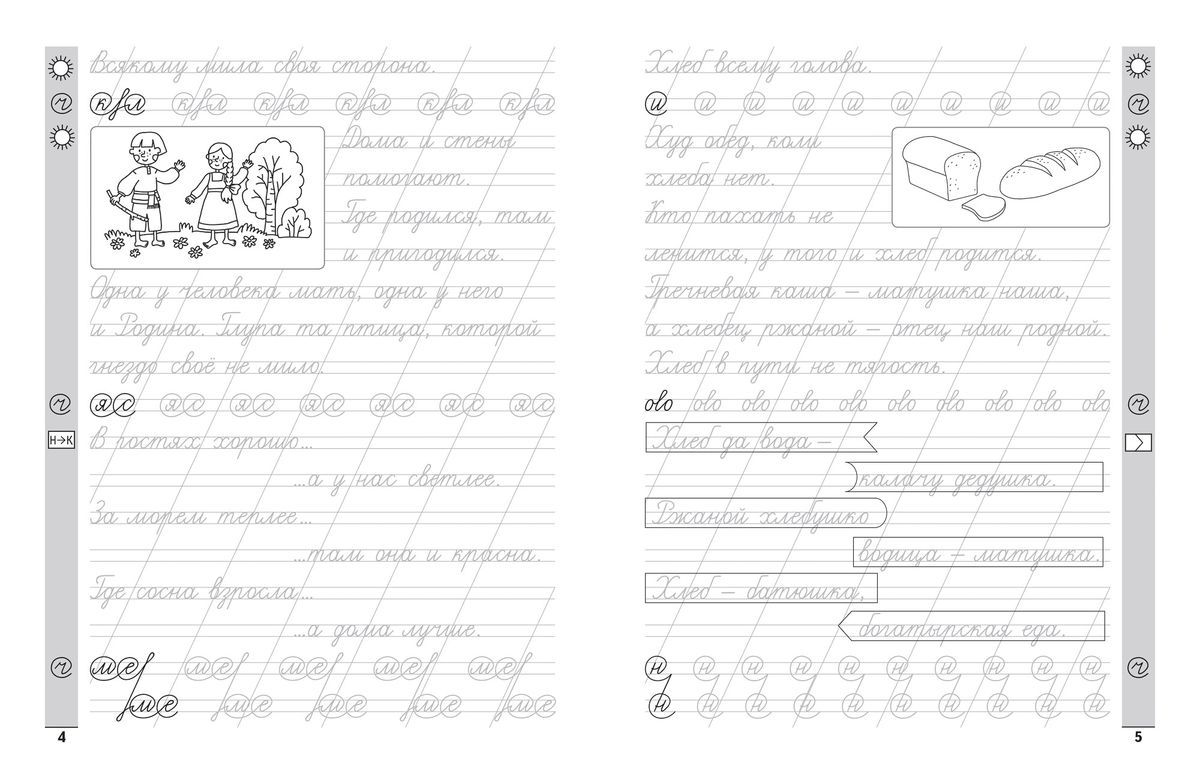 Всякому мила своя сторона.
Дома и стены
помогают.
Где родился, там
и пригодился.
Одна у человека мать, одна у него
и Родина. Глупа та птица, которой
гнездо своё не мило.
яс яс яс яс яс яс яс
Н→К
В гостях хорошо...
...а у нас светлее.
За морем теплее...
...там она и красна.
Где сосна взросла...
...а дома лучше.
ме ме ме ме ме
ме ме ме ме ме
4
Хлеб всему голова.
и и и и и и и и и и
Худ обед, коли
хлеба нет.
Кто пахать не
ленится, у того и хлеб родится.
Гречневая каша – матушка наша,
а хлебец ржаной – отец наш родной.
Хлеб в пути не тягость.
ово ово ово ово ово ово ово ово ово ово
Хлеб да вода –
калачу дедушка.
Ржаной хлебушко
водица – матушка.
Хлеб – батюшка,
богатырская еда.
н н н н н н н н н н
н н н н н н н н н н
5